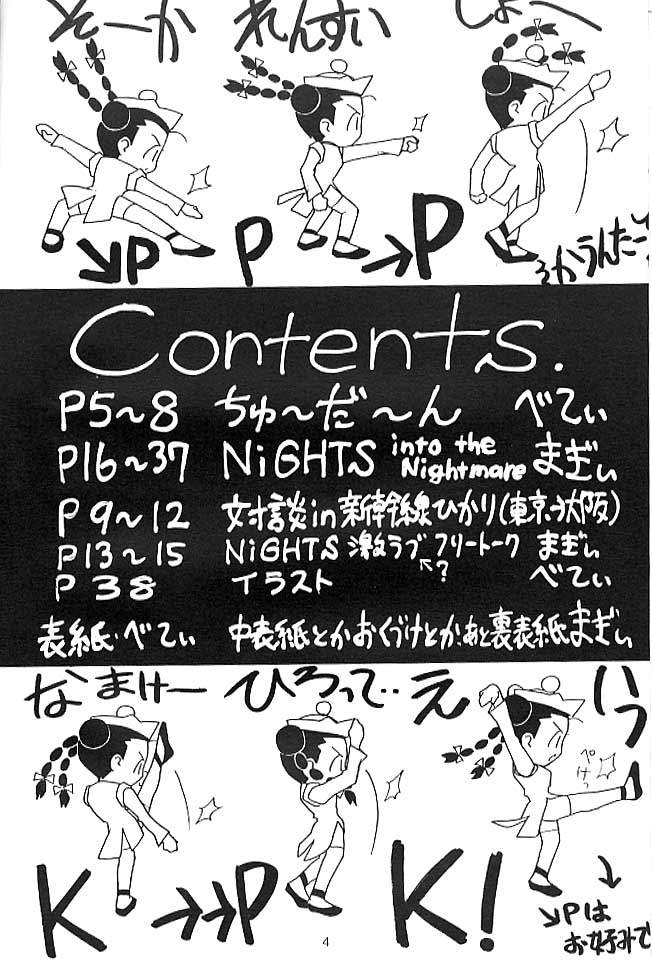 そーか
れんすい
しょー
↘P
P
→P
Contents.
P5〜8 ちゅ〜だ〜ん べてぃ
P16〜37 NiGHTS into the Nightmare まぎぃ
P9〜12 対談in新幹線ひかり(東京→大阪)
P13〜15 NiGHTS 激ラブフリートーク まぎぃ
↖?
P38 イラスト べてぃ
表紙・べてぃ 中表紙とかおくづけとか、あと裏表紙まぎぃ
なまけー
ひろって‥
え
いっ
ぺけっ
K
→→P
K!
↓
↘Pは
お好みで
4